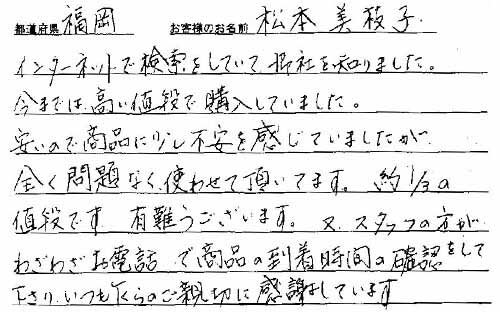 都道府県 福岡 お客様のお名前 松本美枝子
インターネットで検索をしていて御社を知りました。
今までは高い値段で購入していました。
安いので商品に少し不安を感じていましたが
全く問題なく使わせて頂いてます。約1/3の
値段です 有難うございます。又、スタッフの方が
わざわざお電話で商品の到着時間の確認をして
下さり、いつも のご親切に感謝しています